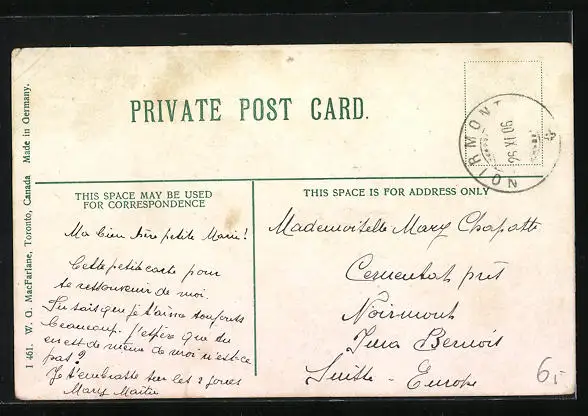 PRIVATE POST CARD.
NOIRMONT
26 XI 06
THIS SPACE MAY BE USED
FOR CORRESPONDENCE
THIS SPACE IS FOR ADDRESS ONLY
Ma bien chère petite Marie!
Cette petite carte pour
te ressouvenir de moi.
Tu sais que je t'aime toujours
beaucoup. J'espère que tu
en est de même de moi n'est-ce
pas?
Je t'embrasse sur les 2 joues
Mary
Mademoiselle Mary Chapatte
Cementat près
Noirmont
Jura Bernois
Suisse - Europe
6,-
1 461. W. G. MacFarlane, Toronto, Canada Made in Germany.